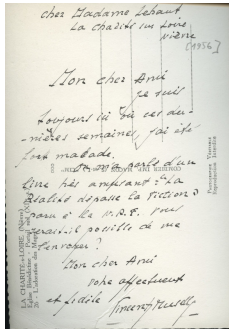 chez Madame Lehaut
La Charité sur Loire
Nièvre
[1956]
Mon cher Ami
Je suis
toujours ici où ces der-
nières semaines, j'ai été
fort malade.
On m'a parlé d'un
livre très amusant: "La
réalité dépasse la fiction"
paru à la N.R.F. Vous
serait-il possible de me
l'envoyer?
Mon cher Ami
votre affectueux
et fidèle Vincent Muselli
LA CHARITE-s-LOIRE (Nièvre)
26 - L'adoration des Mages
Reproduction Interdite